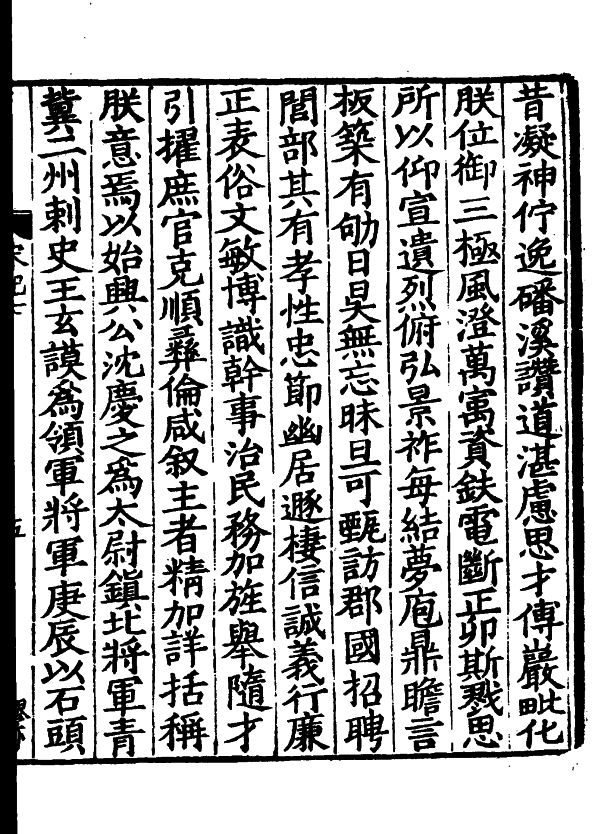 昔凝神佇逸磻溪讚道湛慮思才傅巖毗化
朕位御三極風澄萬㝢資鈇電斷正卯斯戮思
所以仰宣遺烈俯弘景祚每結夢庖鼎瞻言
板築有劬日昃無忘昧旦可甄訪郡國招聘
閭部其有孝性忠節幽居遯棲信誠義行廉
正表俗文敏博識幹事治民務加旌舉隨才
引擢庶官克順彝倫咸叙主者精加詳括稱
朕意焉以始興公沈慶之爲太尉鎮北將軍青
冀二州刺史王玄謨爲領軍將軍庚辰以石頭
宋紀七
五